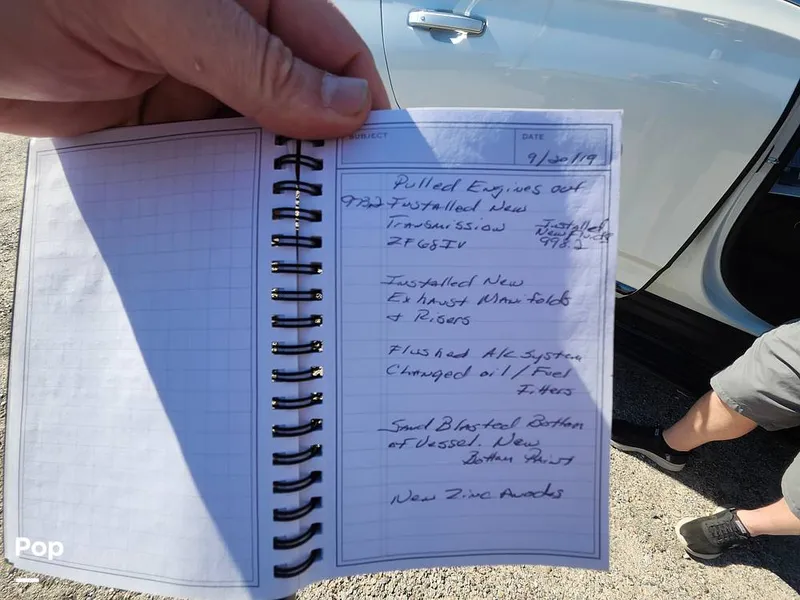 SUBJECT
DATE
9/20/19
Pulled Engines out
998.2 Installed New
Transmission
ZF68IV
Installed
New
998.2
Installed New
Exhaust Manifolds
& Risers
Flushed A/C System
Changed oil / Fuel
Filters
Sand Blasted Bottom
of Vessel. New
Bottom Paint
New Zinc Anodes
Pop